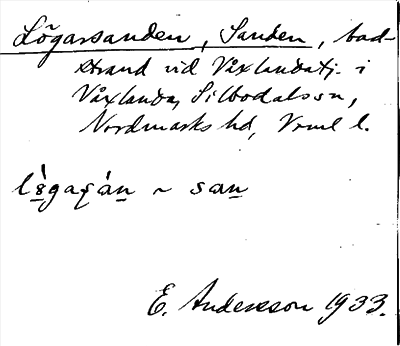 Lögarsanden, Sanden, bad-
strand vid Våxlandatj. i
Våxlanda, Silbodalssn,
Nordmarks hd, Vrml l.
~ san
E. Andersson 1933.